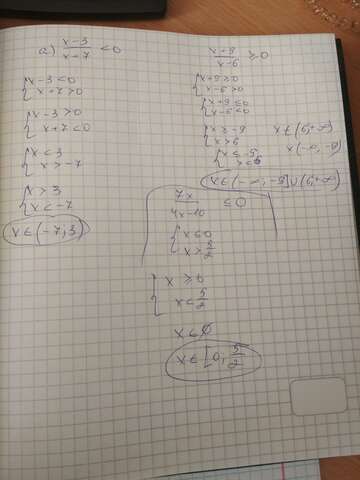 а) x-3/x+7 <0
{x-3<0
x+7>0
{x-3>0
x+7<0
{x<3
x>-7
{x>3
x<-7
x∈(-7;3)
x+9/x-6 ≥0
{x+9≥0
x-6>0
{x+9≤0
x-6<0
{x≥-9
x>6
x∈(6;+∞)
{x≤-9
x<6
x(-∞,-9)
x∈(-∞,-9]∪(6;+∞)
7x/4x-10 ≤0
{x≤0
x>5/2
{x≥0
x<5/2
x∈∅
x∈[0;5/2